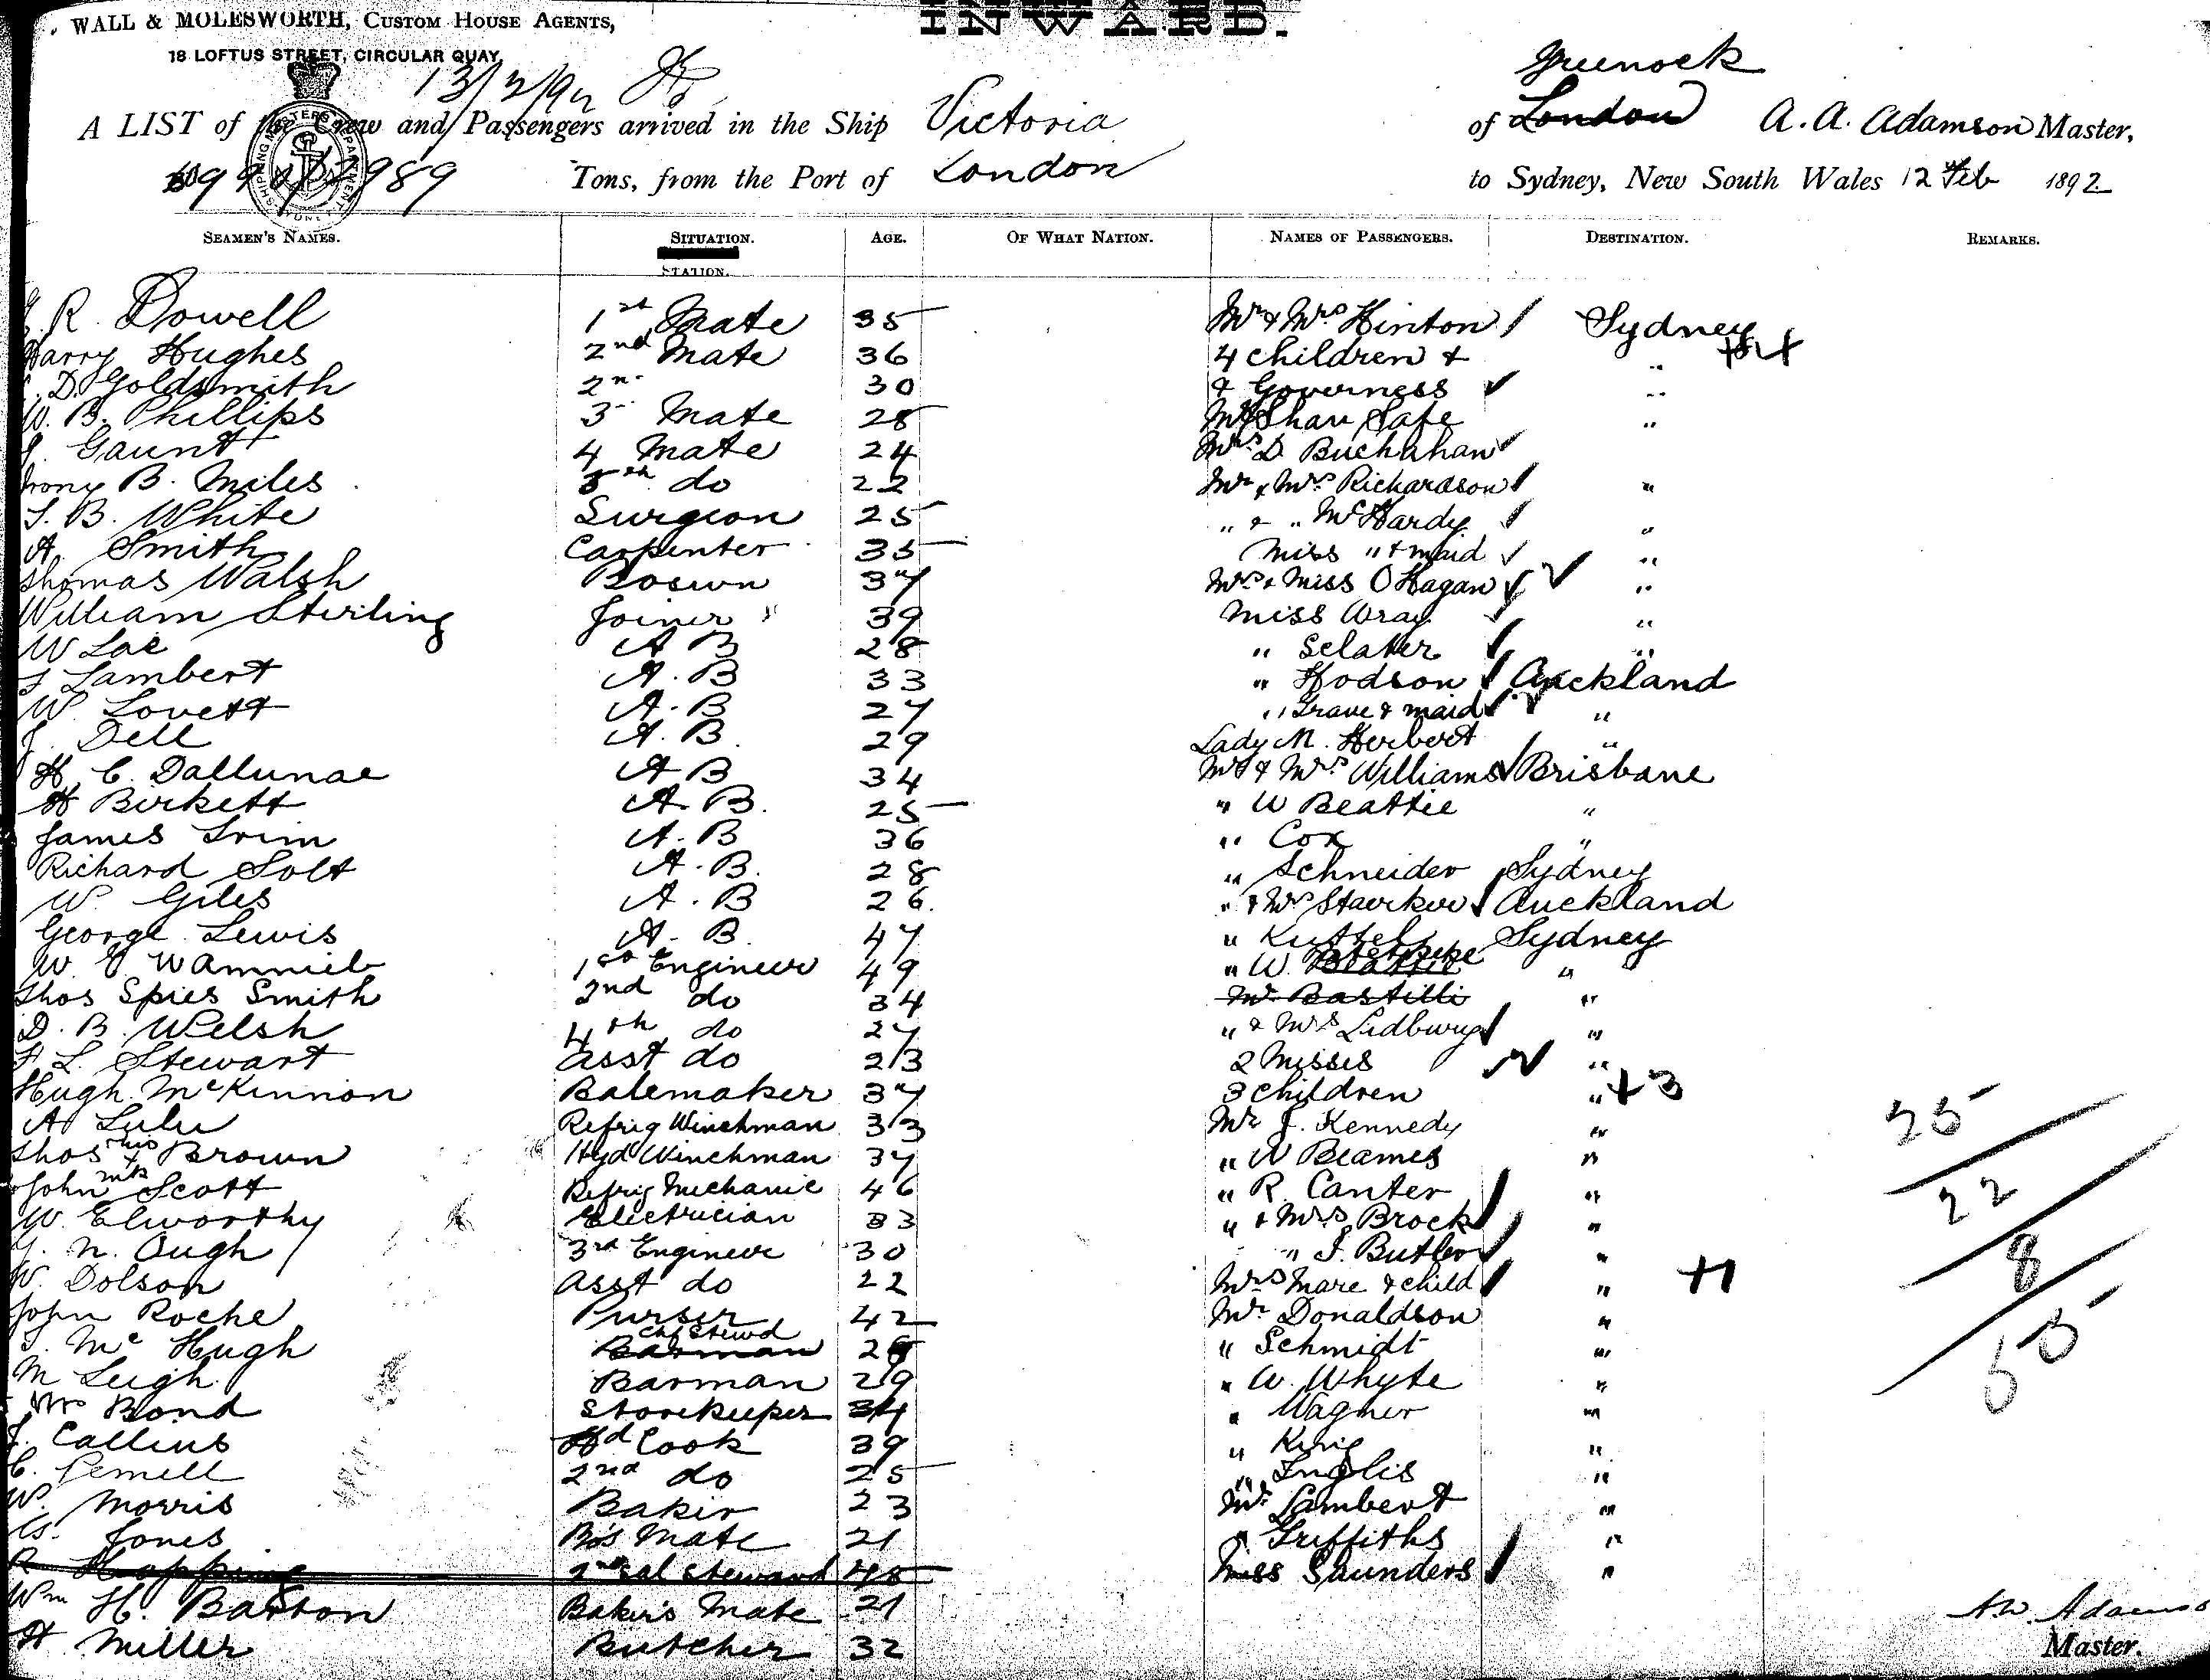 WALL & MOLESWORTH, CUSTOM HOUSE AGENTS,
18 LOFTUS STREET, CIRCULAR QUAY,
INWARD.
13/2/92
Greenock
A LIST of the Crew and Passengers arrived in the Ship Victoria of London A. A. Adamson Master,
Tons, from the Port of London to Sydney, New South Wales 12 Feb 1892
SEAMEN'S NAMES. SITUATION. AGE. OF WHAT NATION. NAMES OF PASSENGERS. DESTINATION. REMARKS.
STATION.
R. Dowell 1st Mate 35 Mr & Mrs Hinton Sydney
Harry Hughes 2nd Mate 36 4 children & "
D. Goldsmith 2n 30 & Governess "
W. B. Phillips 3 Mate 28 Shaw Safe "
Gaunt 4 Mate 24 Mrs D Buchanan
B. Miles 5th do 22 Mr & Mrs Richardson "
S. B. White Surgeon 25 " & " McHardy "
A. Smith Carpenter 35 Miss " & maid "
Thomas Walsh Bosun 37 Mrs & Miss O'Hagan "
William Sterling Joiner 39 Miss Wray "
W Lae A B 28 " Sclater "
Lambert A. B 33 " Hodson Auckland
W. Lovett A. B 27 " Grave & maid "
J. Dell A. B. 29 Lady M. Herbert "
H. C. Dallunae A B 34 Mr & Mrs Williams Brisbane
H Birkett A. B. 25 " W Beattie "
James Trim A. B 36 " Cox "
Richard Solt A. B. 28 " Schneider Sydney
W. Giles A. B 26 " & Mrs Staerker Auckland
George Lewis A. B 47 " Kuttel Sydney
W. 1st Engineer 49 " W. Beattie "
Thos Spies Smith 2nd do 34 Mr Bastilli "
D. B. Welsh 4th do 27 " & Mrs Ludbury "
F L. Stewart asst do 23 2 Misses "
Hugh McKinnon Boilermaker 37 3 children " +3
A Lulu Refrig Winchman 33 Mr J. Kennedy "
Thos his x mk Brown Hyd Winchman 37 " W Beames "
John Scott Refrig Mechanic 46 " R. Canter "
W. Elworthy Electrician 33 " & Mrs Brock "
G. N. Ough 3rd Engineer 30 " J. Butler "
W. Dolson asst do 22 Mrs Mare & child " +1
John Roche Purser 42 Mr Donaldson "
Mc Hugh Barman Ch Stewd " Schmidt "
M Leigh Barman 29 " W. Whyte "
Bond Storekeeper 34 " Wagner "
Callins Hd Cook 39 " King "
C. Pemell 2nd do 25 " Inglis "
W. Morris Baker 23 Mr Lambert "
Jones Bo's Mate 21 " Griffiths "
R 2nd sal steward 48 Miss Saunders "
Wm H. Barton Baker's Mate 21
H Miller Butcher 32
25
22
8
55
Master.